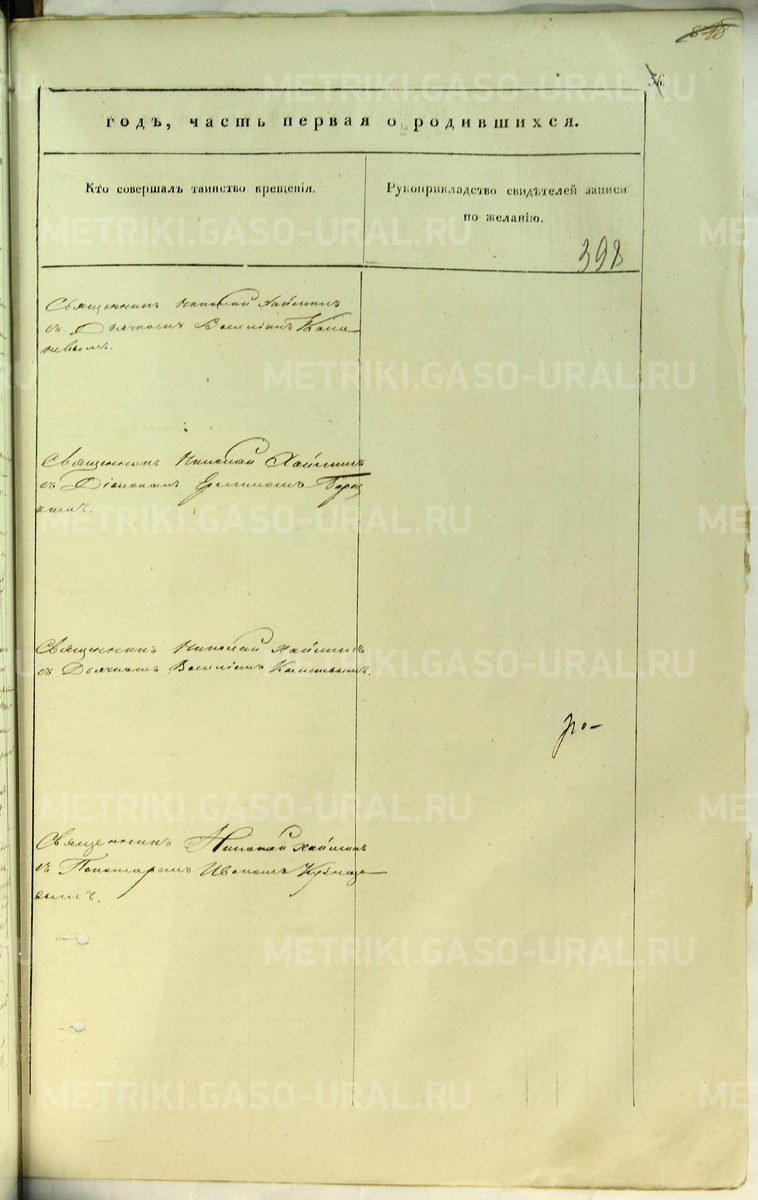 36.
годъ, часть первая о родившихся.
Кто совершалъ таинство крещенія.
Рукоприкладство свидѣтелей записи
по желанію.
398
Священникъ Николай Хайминъ
съ Дьячкомъ Василіемъ
Священникъ Николай Хайминъ
съ Діакономъ
Священникъ Николай Хайминъ
съ Дьячкомъ Василіемъ
Священникъ Николай Хайминъ
съ Пономаремъ Иваномъ Кузнецо
вымъ.
METRIKI.GASO-URAL.RU